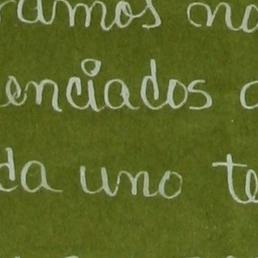 ramos no
enciados a
da uno te